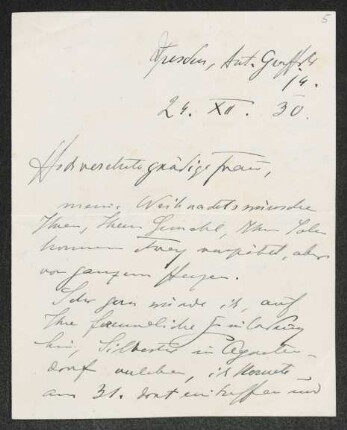 5
Dresden, Ant. Graffstr
14.
24. XII. 30.
Hochverehrte gnädige Frau,
meine Weihnachtswünsche
Ihnen, Ihrem Gemahl, Ihrem Sohn
kommen zwar verspätet, aber
von ganzem Herzen.
Sehr gern würde ich, auf
Ihre freundliche Einladung
hin, Silvester in Agneten-
dorf verleben, ich könnte
am 31. dort eintreffen und